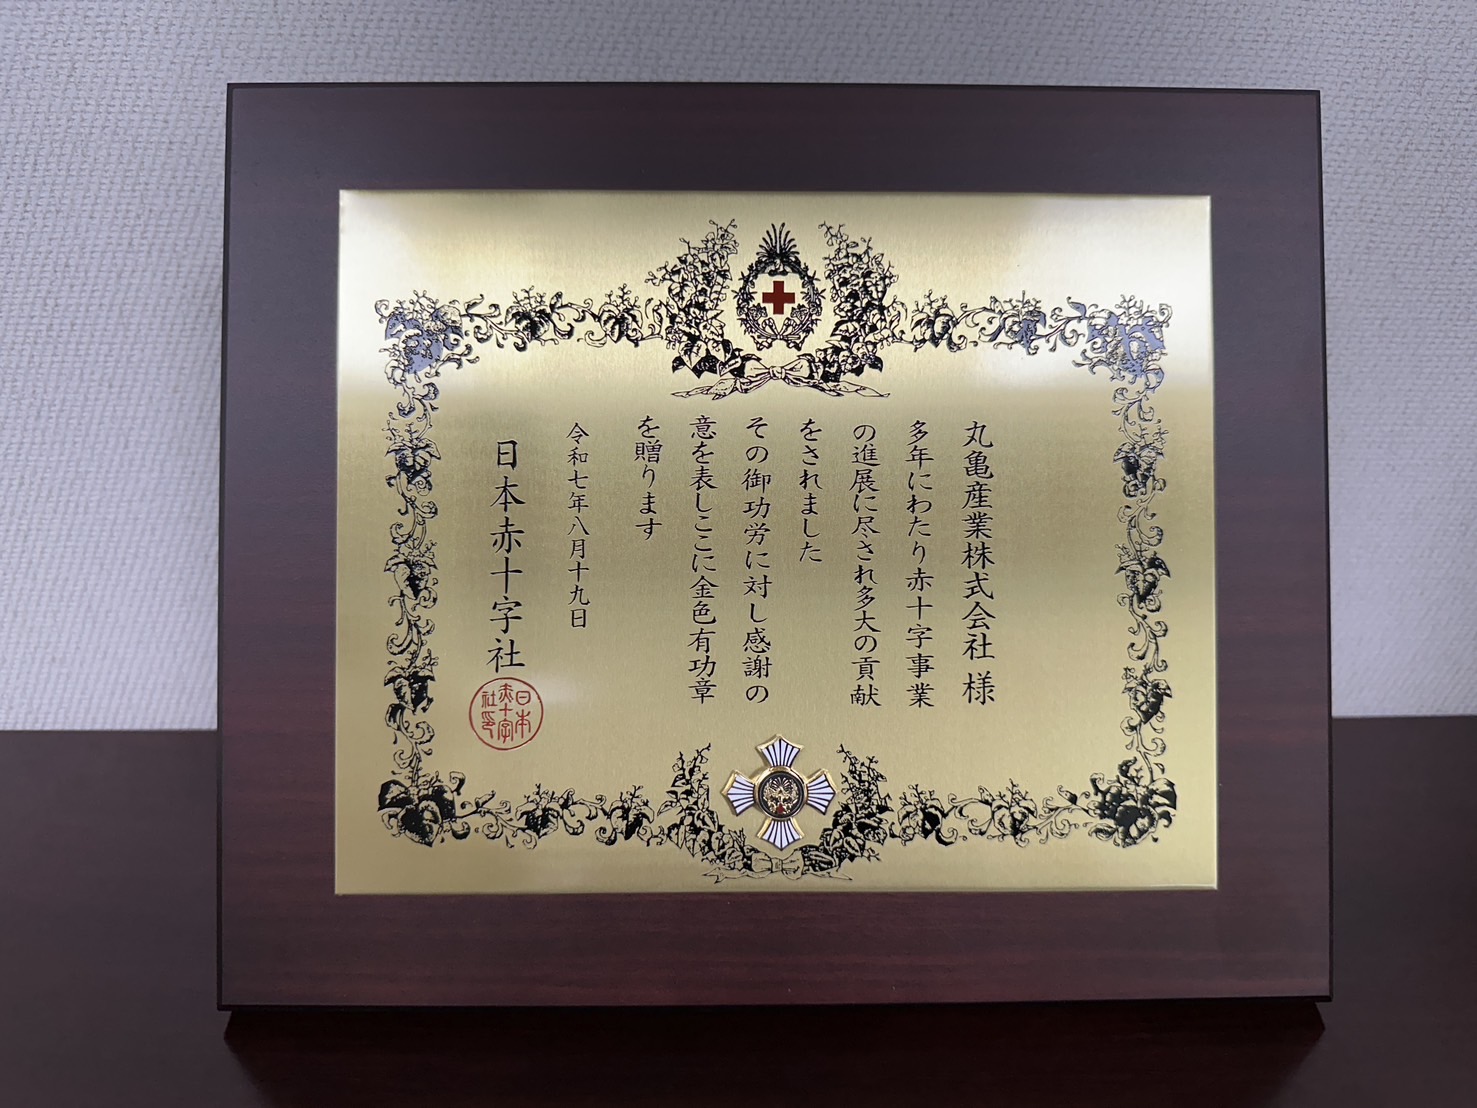 丸亀産業株式会社 様
多年にわたり赤十字事業
の進展に尽され多大の貢献
をされました
その御功労に対し感謝の
意を表しここに金色有功章
を贈ります
令和七年八月十九日
日本赤十字社
日本
赤十字
社印